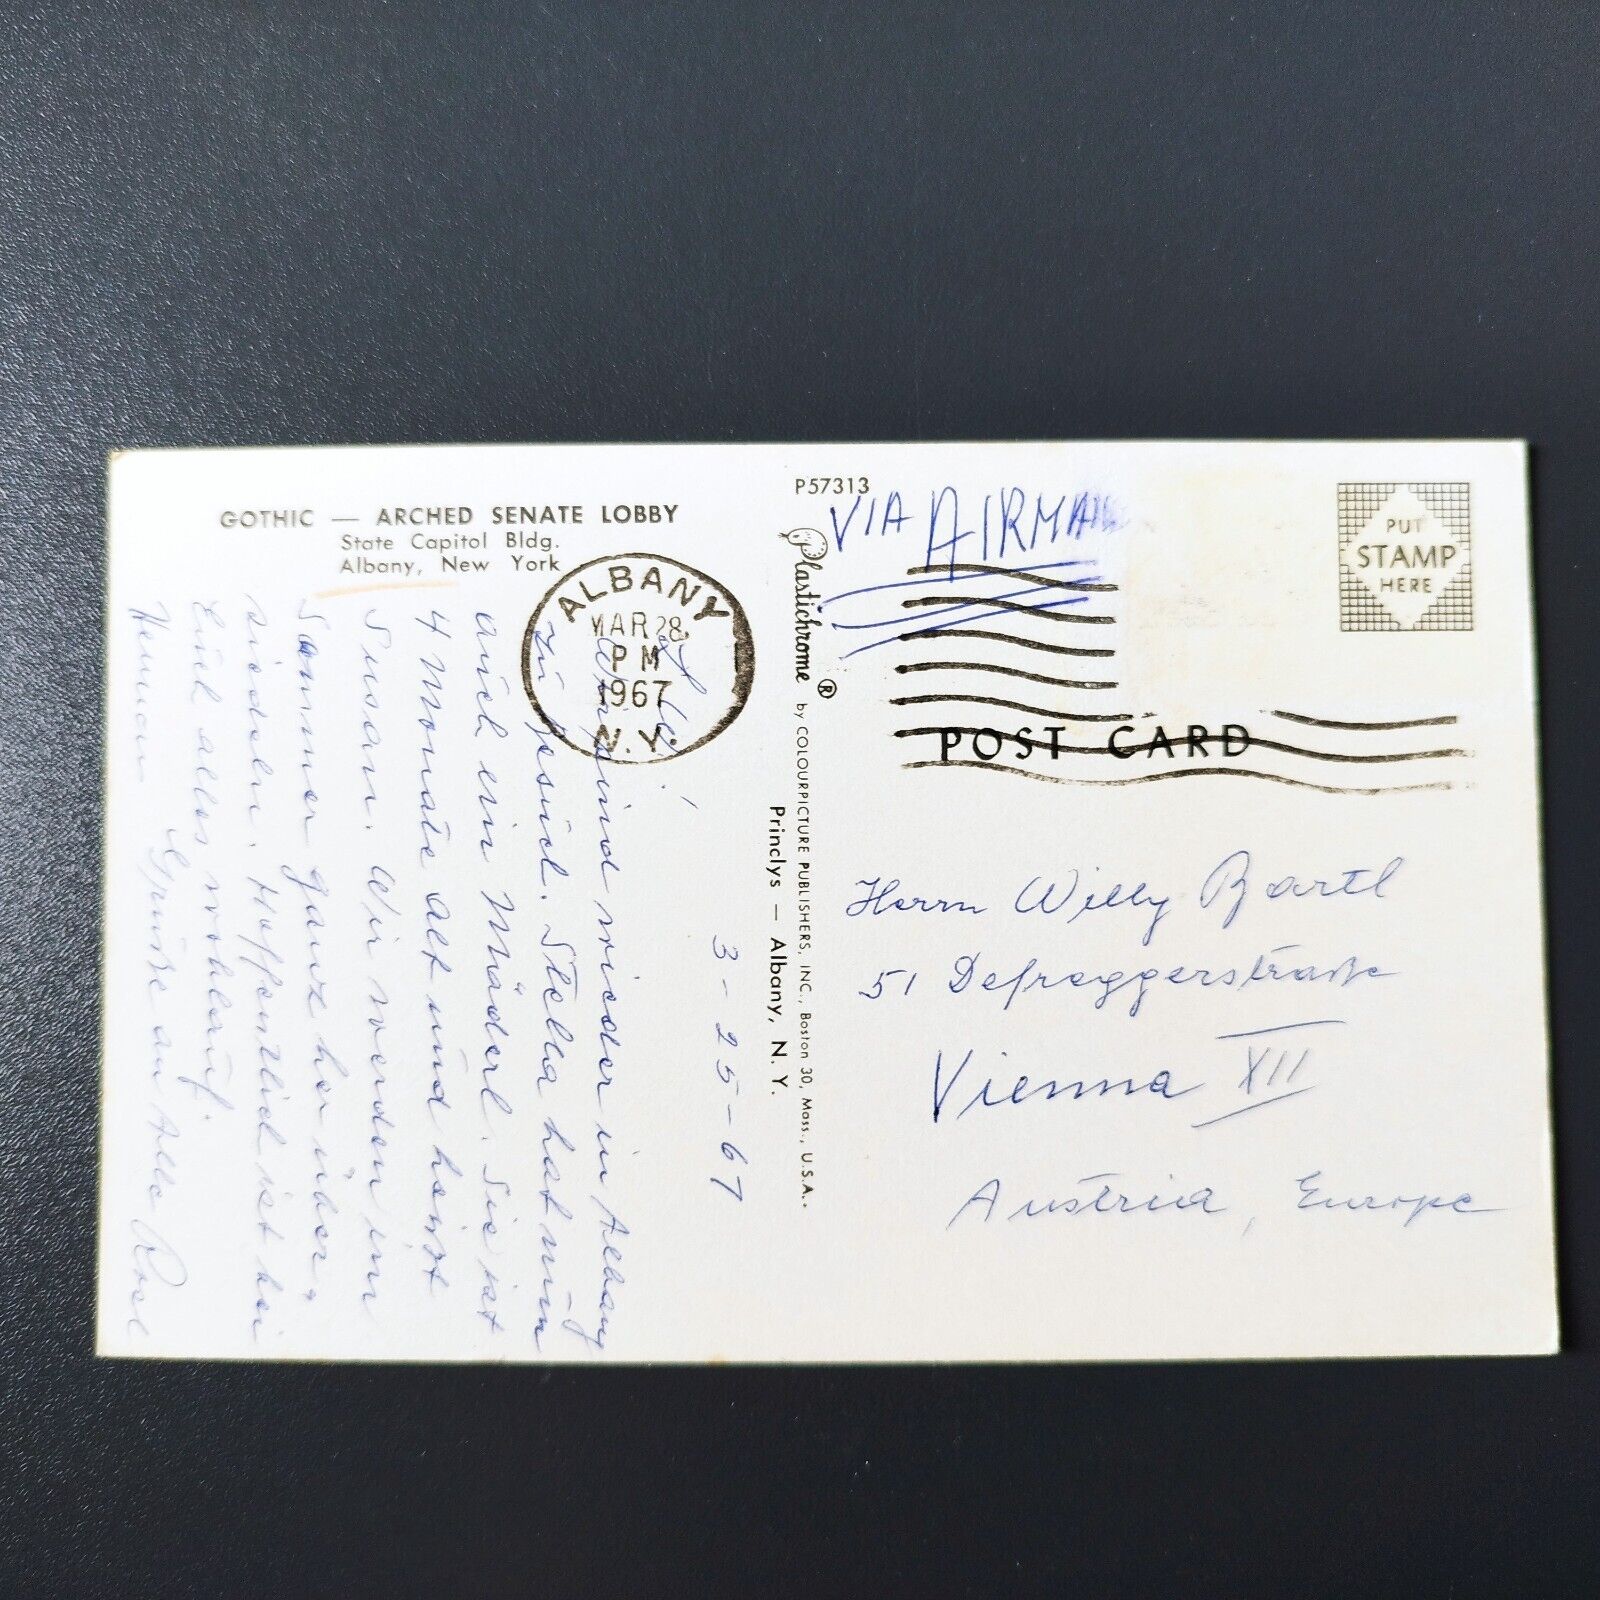 GOTHIC — ARCHED SENATE LOBBY
State Capitol Bldg.
Albany, New York
ALBANY
MAR 28
PM
1967
N.Y.
3-25-67
Wir sind wieder in Albany
zu Besuch. Stella hat nun
auch ein Mäderl. Sie ist
4 Monate alt und heißt
Susan. Wir werden im
Sommer ganz herüber,
siedeln. Hoffentlich ist bei
Euch alles wohlauf.
Grüße an Alle Rosl
Herman
P57313
Plastichrome ® by COLOURPICTURE PUBLISHERS, INC., Boston 30, Mass., U.S.A.
Princlys — Albany, N. Y.
VIA AIRMAIL
PUT
STAMP
HERE
POST CARD
Herrn Willy Bartl
51 Defreggerstraße
Vienna XII
Austria, Europe